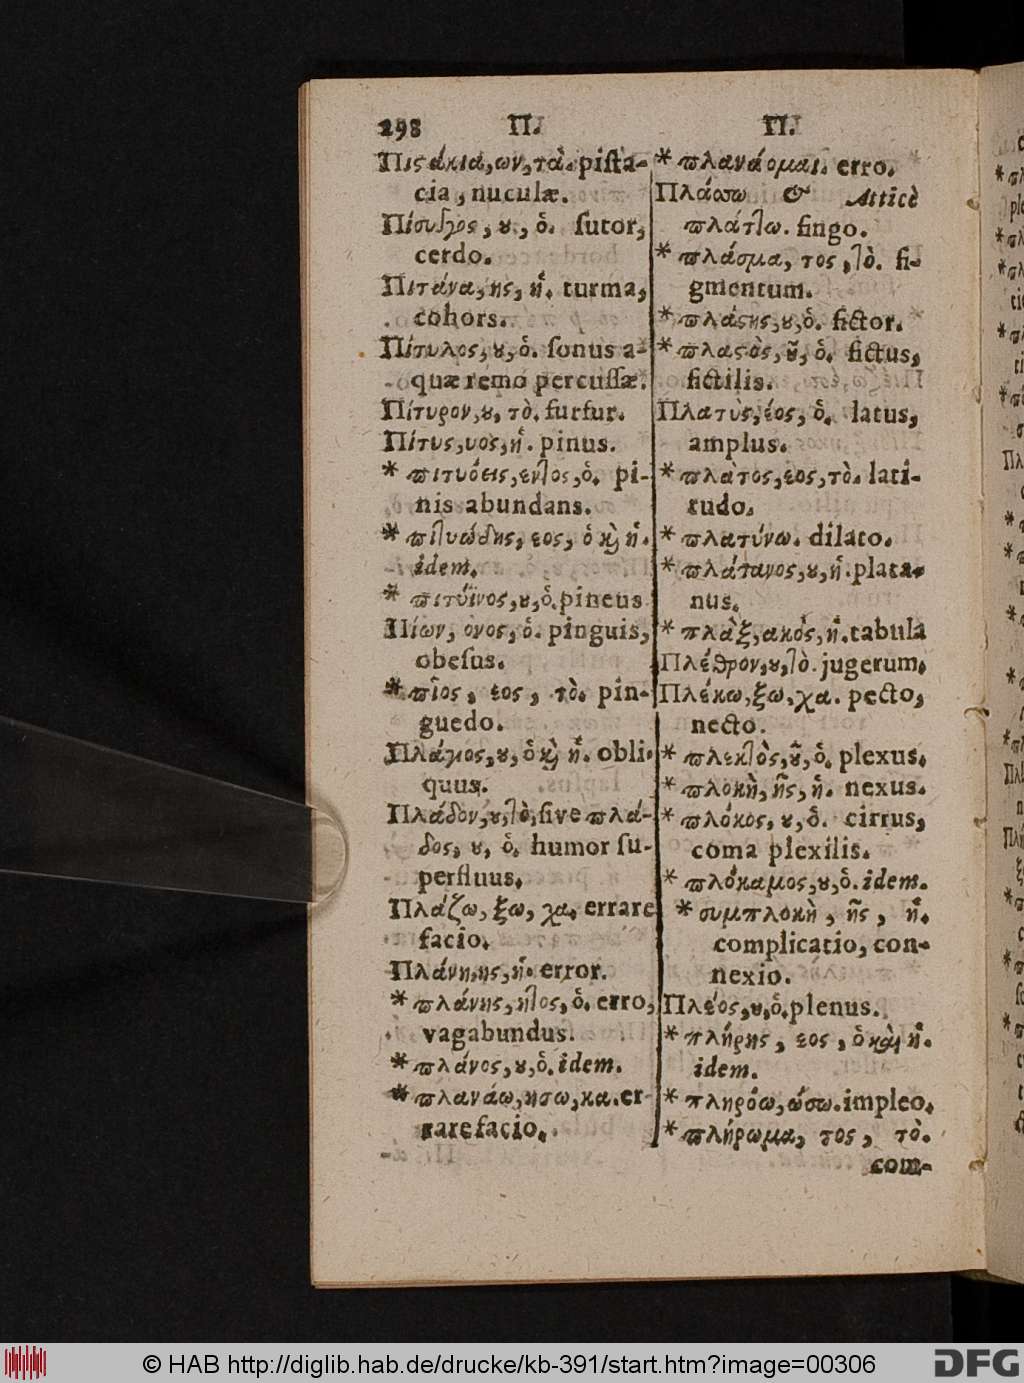 298 Π.
Πιϛάκια, ων, τὰ. pista-
cia, nuculæ.
Πίσυγγος, ȣ, ὁ. sutor,
cerdo.
Πιτάνα, ης, ἡ. turma,
cohors.
Πίτυλος, ȣ, ὁ. sonus a-
quæ remo percussæ.
Πίτυρον, ȣ, τὸ. furfur.
Πίτυς, υος, ἡ. pinus.
* πιτυόεις, εντος, ὁ. pi-
nis abundans.
* πιτυώδης, εος, ὁ κὶ ἡ.
idem.
* πιτύϊνος, ȣ, ὁ. pineus
Πίων, ονος, ὁ. pinguis,
obesus.
* πῖος, εος, τὸ. pin-
guedo.
Πλάγιος, ȣ, ὁ κὶ ἡ. obli-
quus.
Πλάδον, ȣ, τὸ, sive πλά-
δος, ȣ, ὁ. humor su-
perfluus.
Πλάζω, ξω, χα. errare
facio.
Πλάνη, ης, ἡ. error.
* πλάνης, ητος, ὁ. erro,
vagabundus.
* πλάνος, ȣ, ὁ. idem.
* πλανάω, ησω, κα. er-
rare facio.
Π.
* πλανάομαι. erro.
Πλάσσω & Atticè
πλάττω. fingo.
* πλάσμα, τος, τὸ. fi-
gmentum.
* πλάϛης, ȣ, ὁ. fictor.
* πλαϛὸς, ȣ͂, ὁ. fictus,
fictilis.
Πλατὺς, έος, ὁ. latus,
amplus.
* πλάτος, εος, τὸ. lati-
tudo.
* πλατύνω. dilato.
* πλάτανος, ȣ, ἡ. plata-
nus.
* πλὰξ, ακὸς, ἡ. tabula
Πλέθρον, ȣ, τὸ. jugerum.
Πλέκω, ξω, χα. pecto,
necto.
* πλεκτὸς, ȣ͂, ὁ. plexus.
* πλοκὴ, ῆς, ἡ. nexus.
* πλόκος, ȣ, ὁ. cirrus,
coma plexilis.
* πλόκαμος, ȣ, ὁ. idem.
* συμπλοκὴ, ῆς, ἡ.
complicatio, con-
nexio.
Πλέος, ȣ, ὁ. plenus.
* πλήρης, εος, ὁ καὶ ἡ.
idem.
* πληρόω, ώσω. impleo.
* πλήρωμα, τος, τὸ.
com-
© HAB http://diglib.hab.de/drucke/kb-391/start.htm?image=00306
DFG